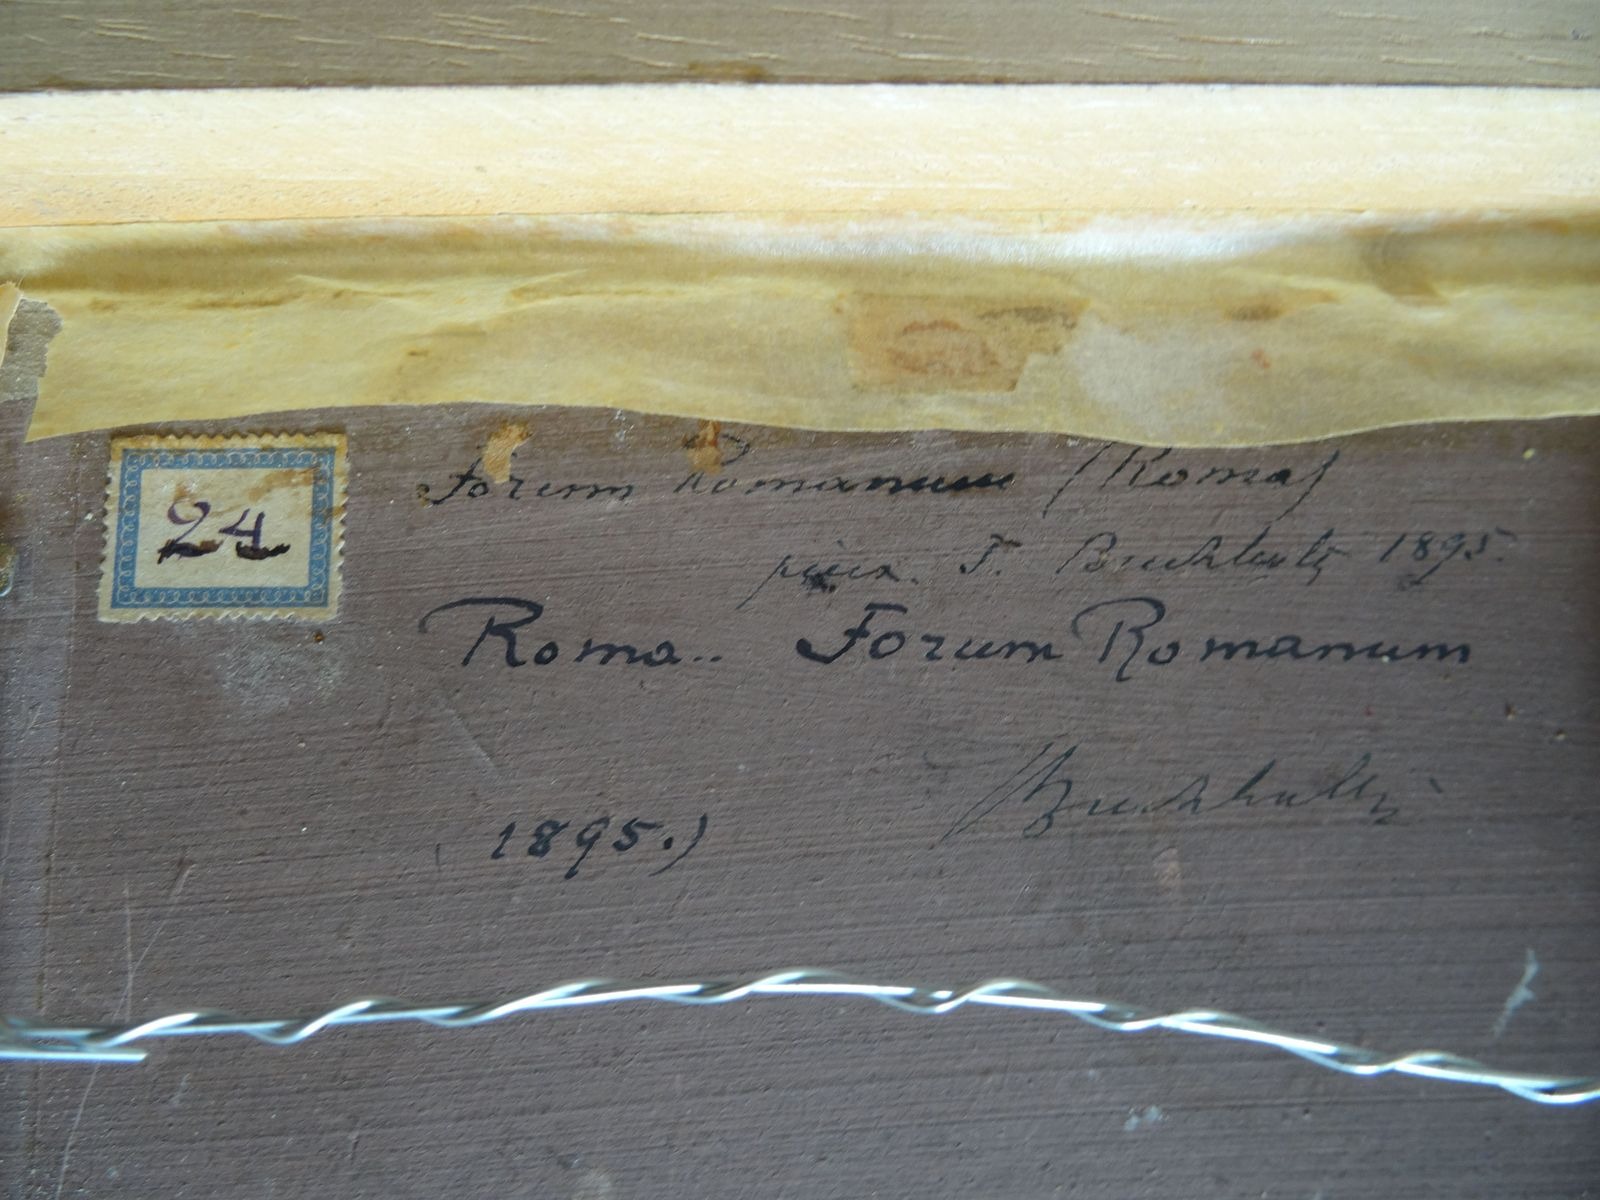 24
Forum Romanum (Roma)
pinx. F. Buchholtz 1895.
Roma.. Forum Romanum
Buchholtz
1895.)